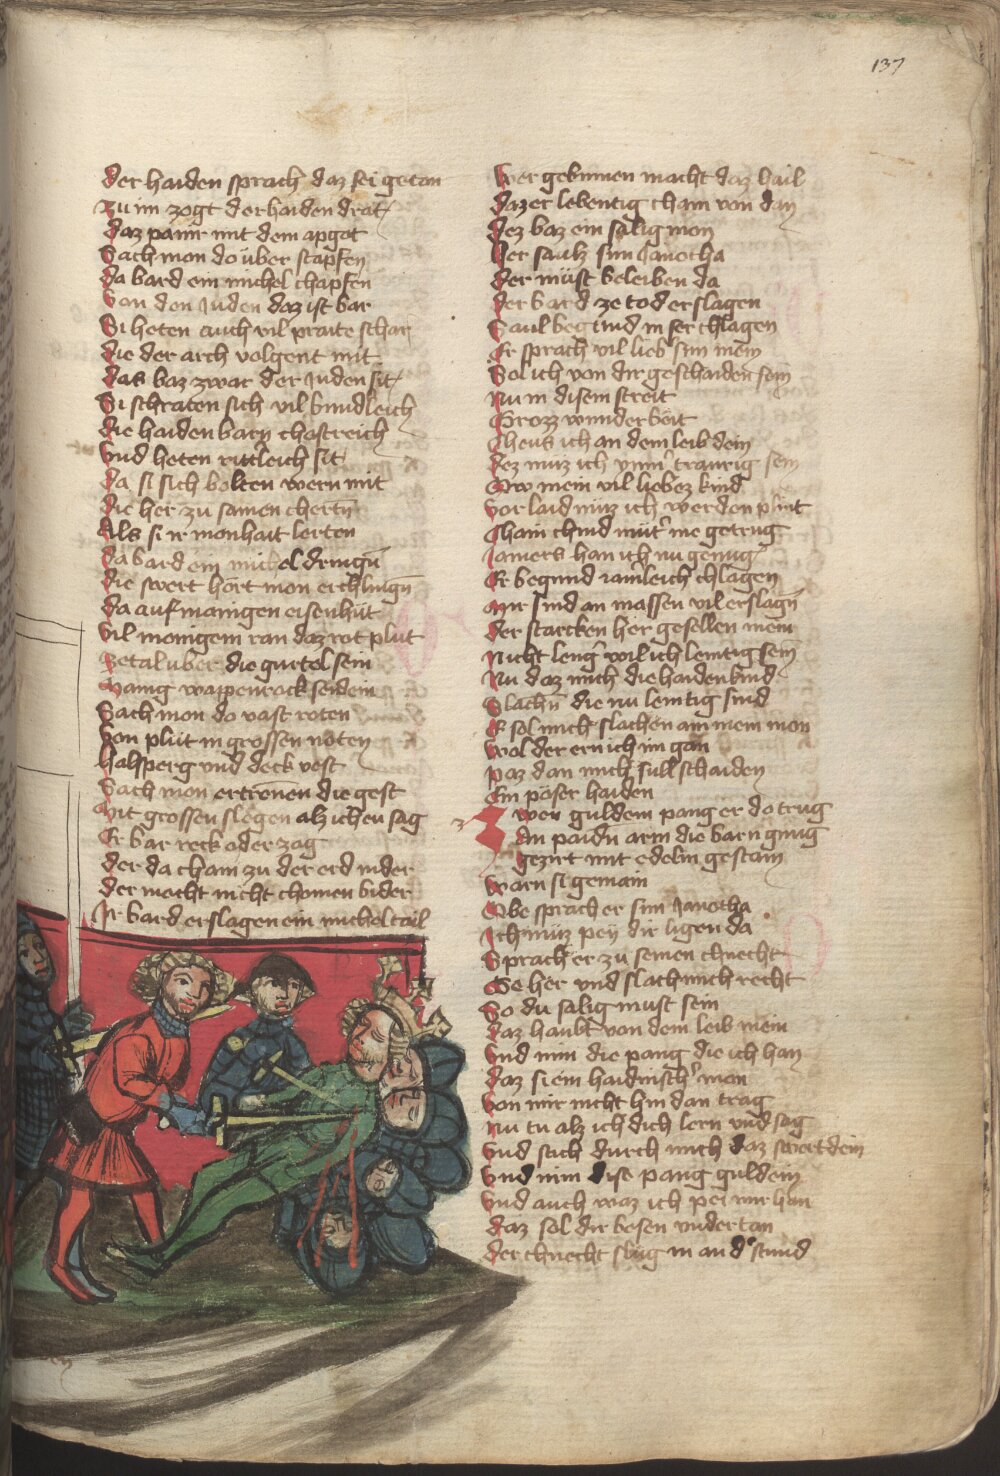 137
Der haiden sprach daz sei getan
Zu im zogt der haiden drat
Daz panir mit dem apgot
Sach mon do über stapfen
Da bard ein michel chapfen
Von den Juden daz ist bar
Si heten auch vil praite schar
Die der arch volgent mit
Das baz zwar der Juden sit
Si schraten sich vil kundleich
Die haiden barn chostreich
Und heten rittleich sit
Da si sich bolten wern mit
Die her zu samen cherten
Als si ir monhait lerten
Da bard ein michel dringen
Die swert hort mon erchlingen
Da auf manigen eisenhut
Vil monigem ran daz rot plut
Zetal uber die gurtel sein
Manig wappenrock seidein
Sach mon do vast roten
Von plut in grossen noten
Halsperg und deck vest
Sach mon ertrenen die gest
Mit grossen slegen alz ich eu sag
Er bar reck oder zag
Der da cham zu der erd nider
Der macht nicht chomen bider
Ir bard erslagen ein michel tail
Wer gebinnen macht daz hail
Daz er lebentig cham von dan
Dez baz ein salig mon
Der sauls sun Janotha
Der must beleiben da
Der bard ze tod erslagen
Saul begund in ser chlagen
Er sprach vil lieb sun mein
Sol ich von dir geschaiden sein
Nu in disem streit
Grozz wunder beit
Cheus ich an dem leib dein
Dez muz ich ymmer traurig sein
Ow mein vil liebez kind
Vor laid muz ich werden plint
Chain chind muter nie getrug
Jamers han ich nu genug
Er begund jamleich chlagen
Mir sind an massen vil erslagen
Der starcken her gesellen mein
Nicht lenger wil ich lentig sein
Nu daz mich die haiden kind
Slachen die nu lemtig sind
Er sol mich slachen ain mein mon
Wol der ern ich im gan
Paz dan mich sull schaiden
Ein poser haiden
Zwen guldein pang er do trug
An paidn arm die barn gnug
Gezirt mit edelm gestain
Warn si gemain
Obe sprach er sun Janotha
Ich muz pey dir ligen da
Sprach er zu seinen chnecht
Ge her und slach mich recht
So du salig must sein
Daz haubt von dem leib mein
Und nim die pang die ich han
Daz si ein haidnischer man
Von mir nicht hin dan trag
Nu tu alz ich dich lern und sag
Und stich durch mich daz swert dein
Und nim dise pang guldein
Und auch waz ich pei mir han
Daz sol dir besen undertan
Der chnecht slug in an der stund